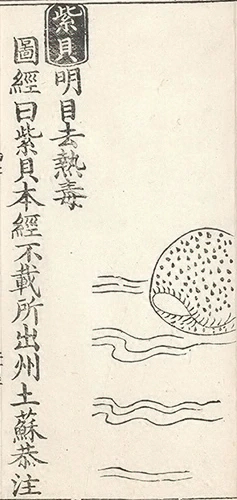 紫貝
明目去熱毒
圖經曰紫貝本經不載所出州土蘇恭注